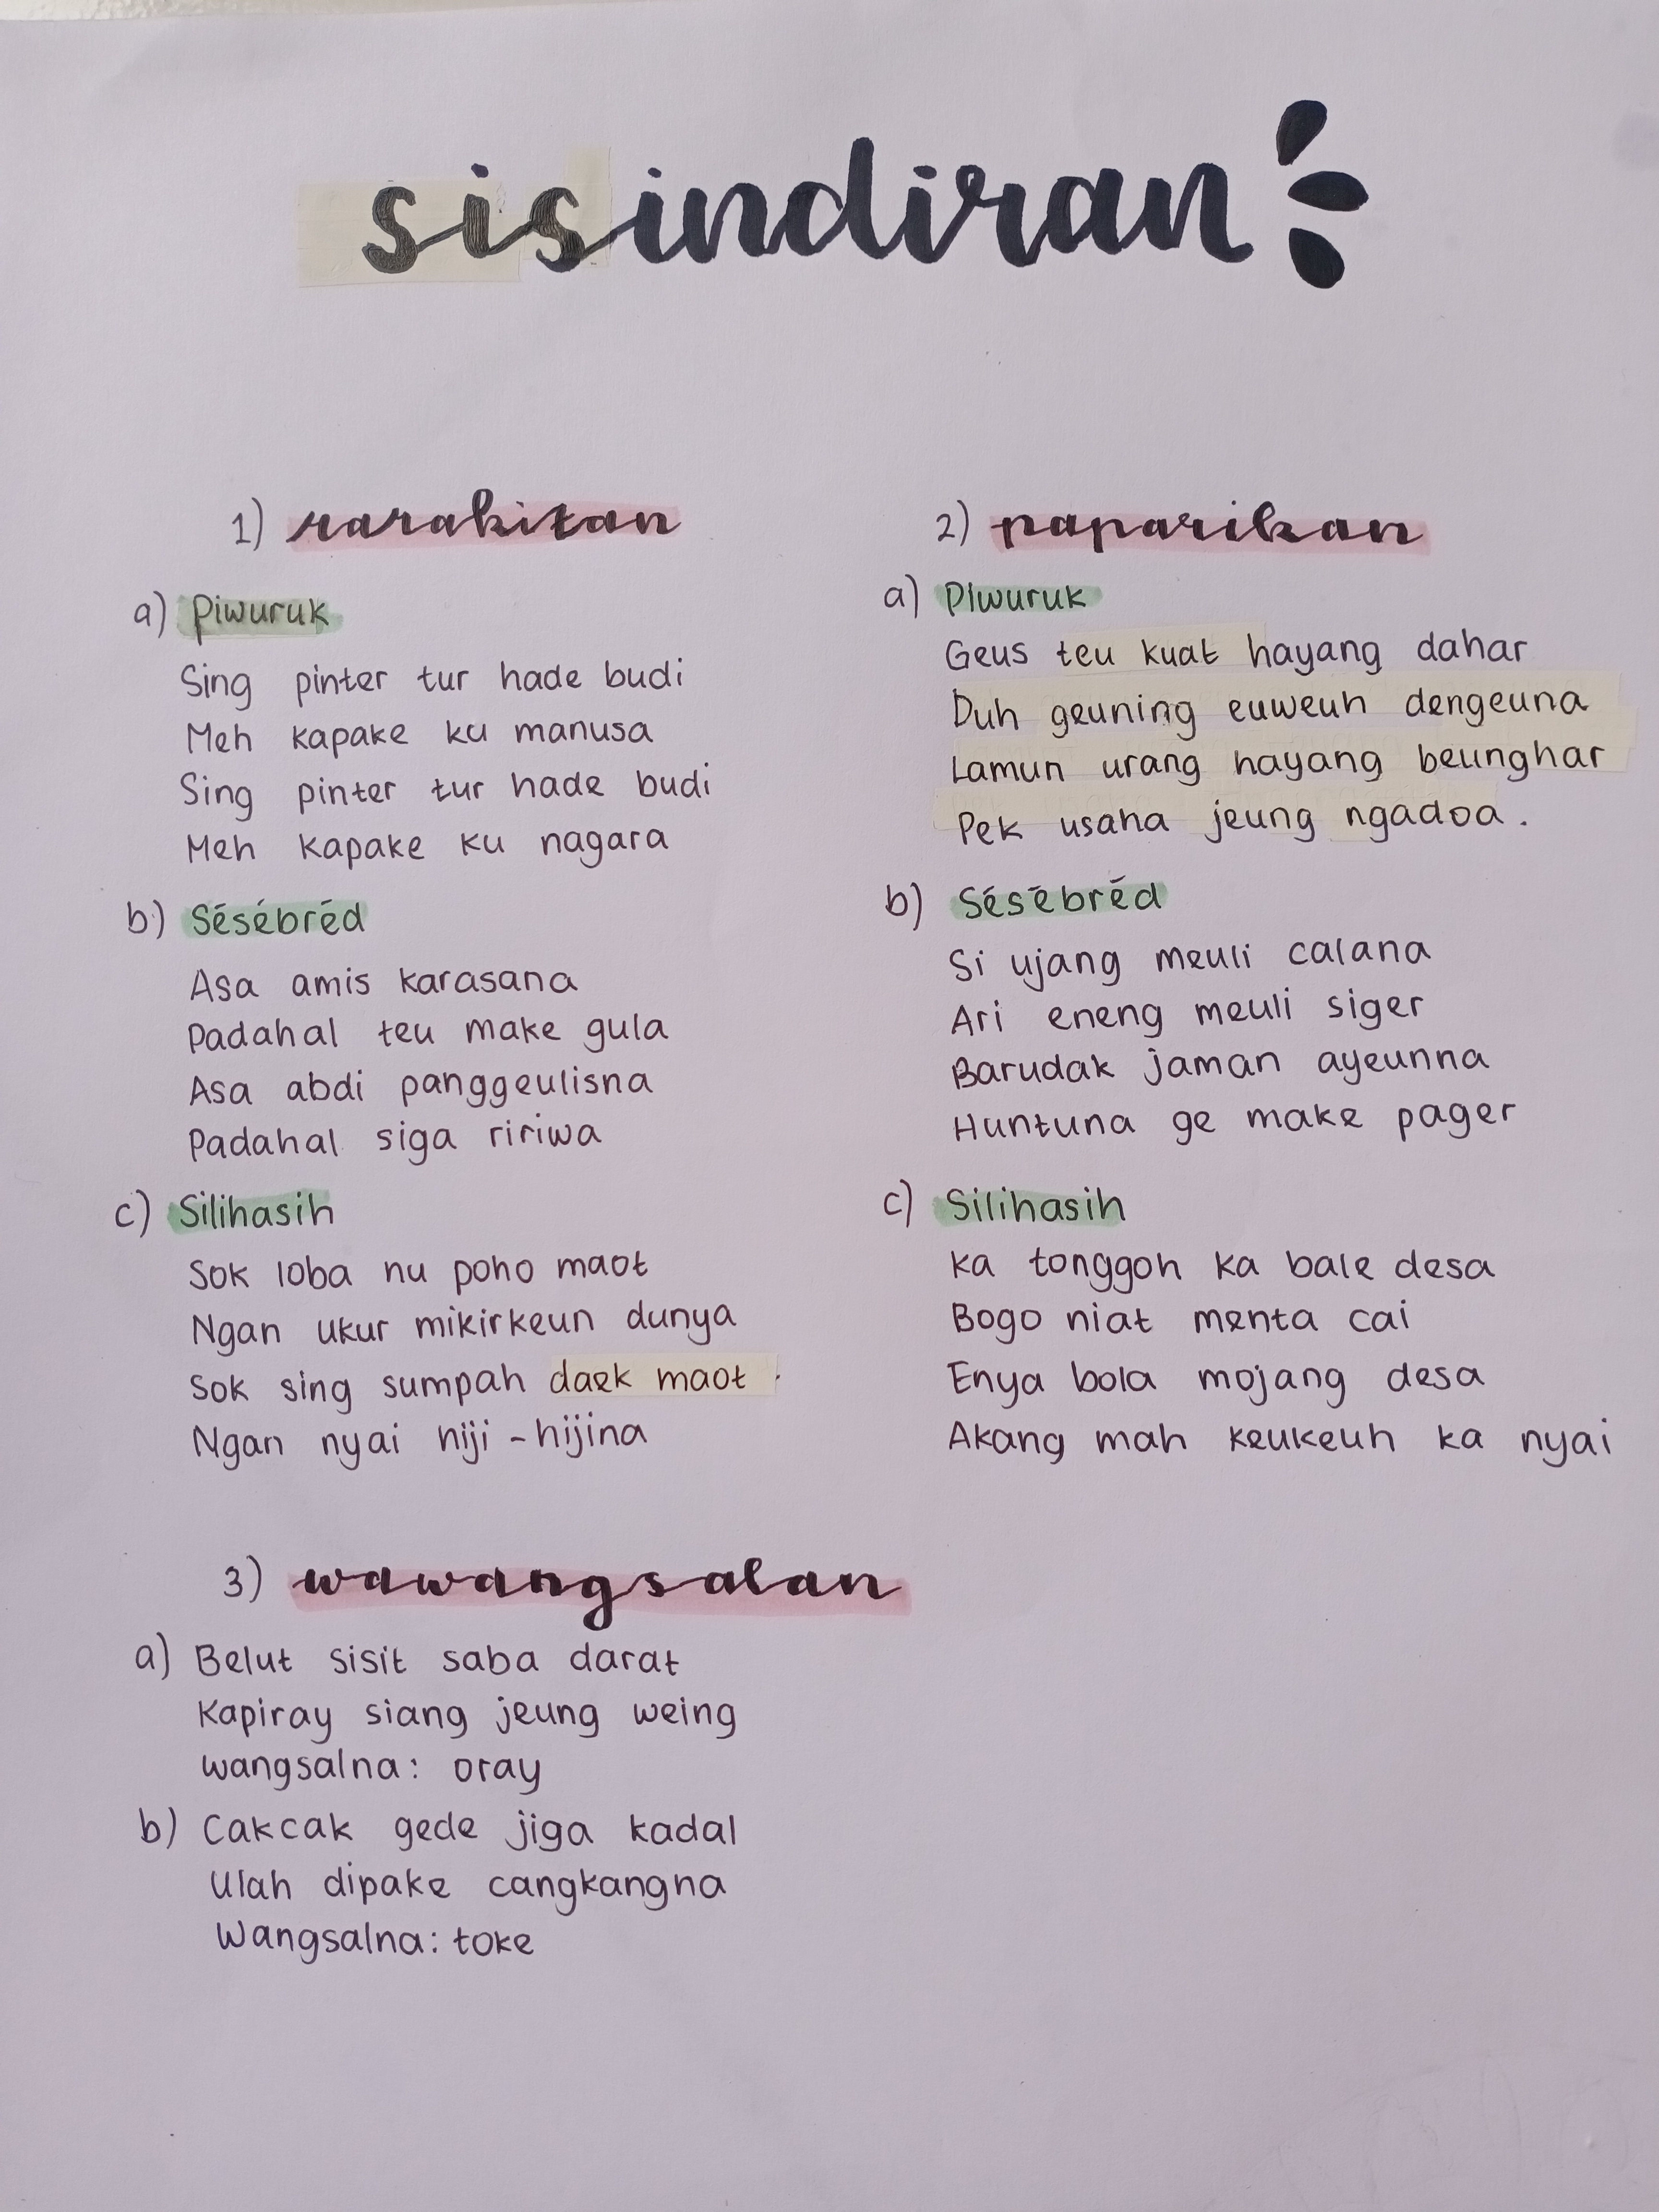 sisindiran
1) rarakitan
a) Piwuruk
Sing pinter tur hade budi
Meh kapake ku manusa
Sing pinter tur hade budi
Meh kapake ku nagara
b) Sésébréd
Asa amis karasana
Padahal teu make gula
Asa abdi panggeulisna
Padahal siga ririwa
c) Silihasih
Sok loba nu poho maot
Ngan ukur mikirkeun dunya
Sok sing sumpah daek maot.
Ngan nyai hiji-hijina
2) paparikan
a) Piwuruk
Geus teu kuat hayang dahar
Duh geuning euweuh dengeuna
Lamun urang hayang beunghar
Pek usaha jeung ngadoa.
b) Sésébréd
Si ujang meuli calana
Ari eneng meuli siger
Barudak jaman ayeunna
Huntuna ge make pager
c) Silihasih
Ka tonggoh ka bale desa
Bogo niat menta cai
Enya bola mojang desa
Akang mah keukeuh ka nyai
3) wawangsalan
a) Belut sisit saba darat
Kapiray siang jeung weing
wangsalna: oray
b) Cakcak gede jiga kadal
Ulah dipake cangkangna
Wangsalna: toke